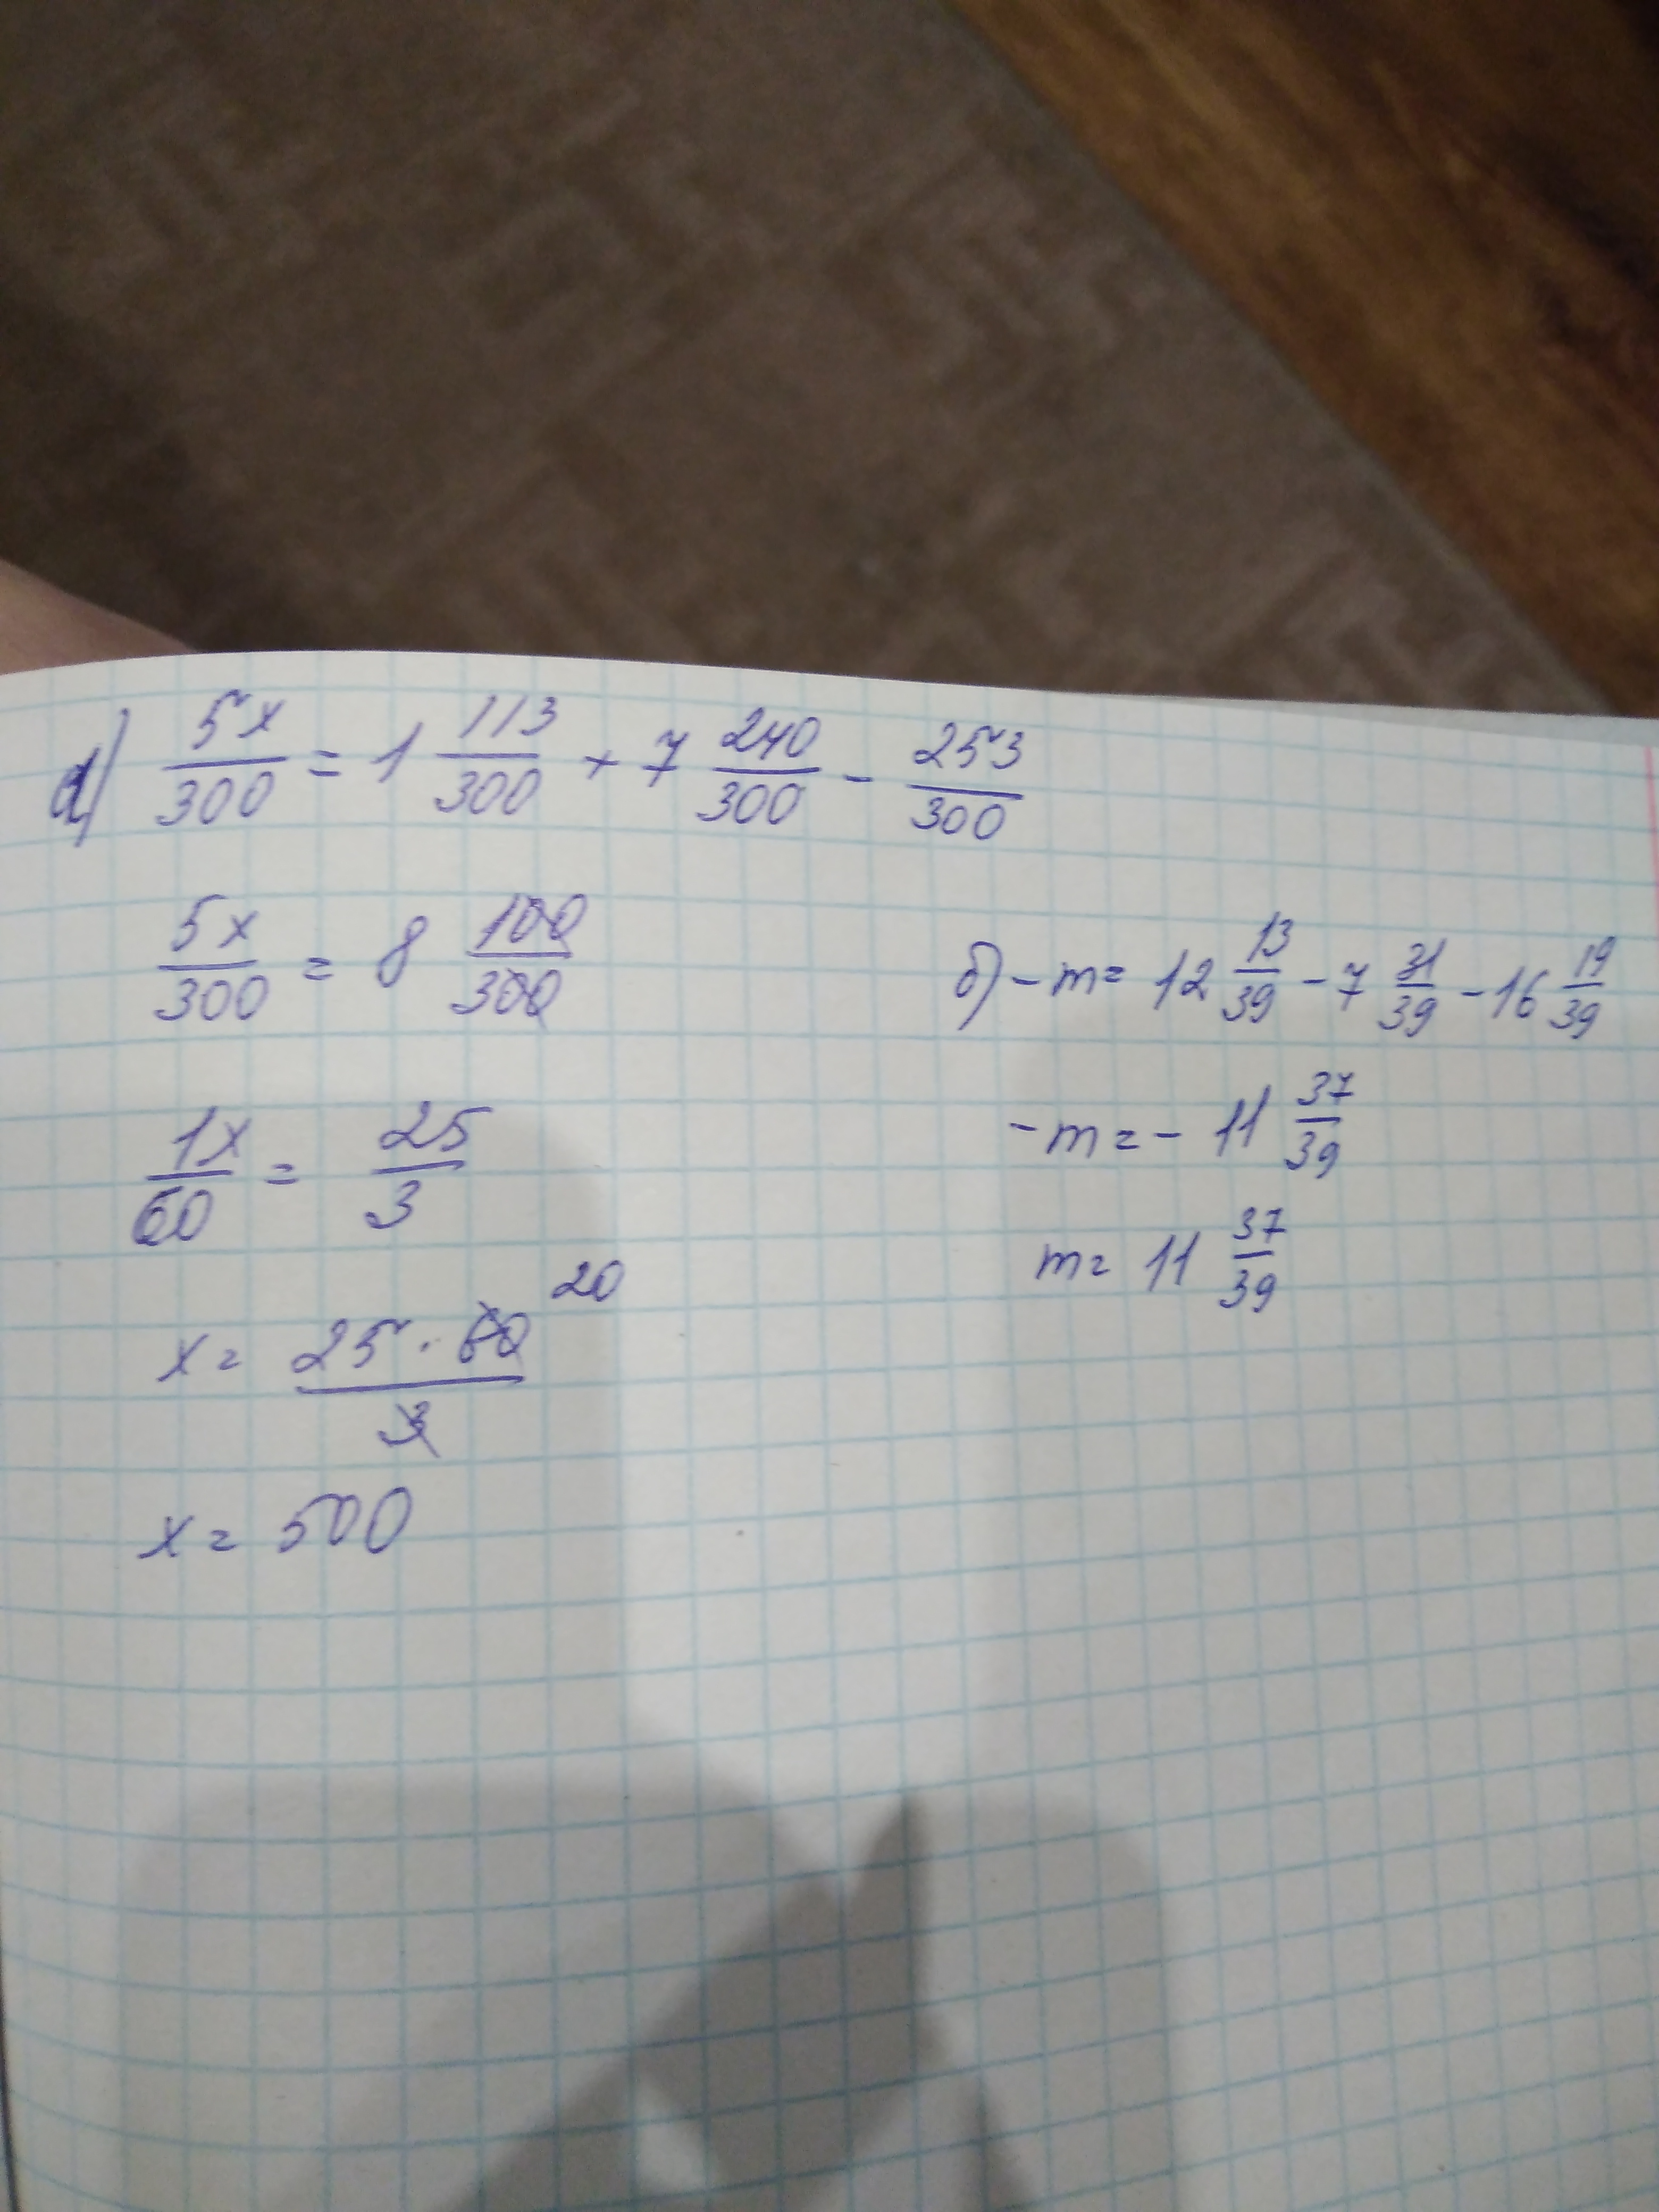 а) 5x/300 = 1 113/300 + 7 240/300 - 253/300
5x/300 = 8 100/300
1x/60 = 25/3
x = 25 · 60/3 20
x = 500
б) - m = 12 13/39 - 7 31/39 - 16 19/39
- m = - 11 37/39
m = 11 37/39